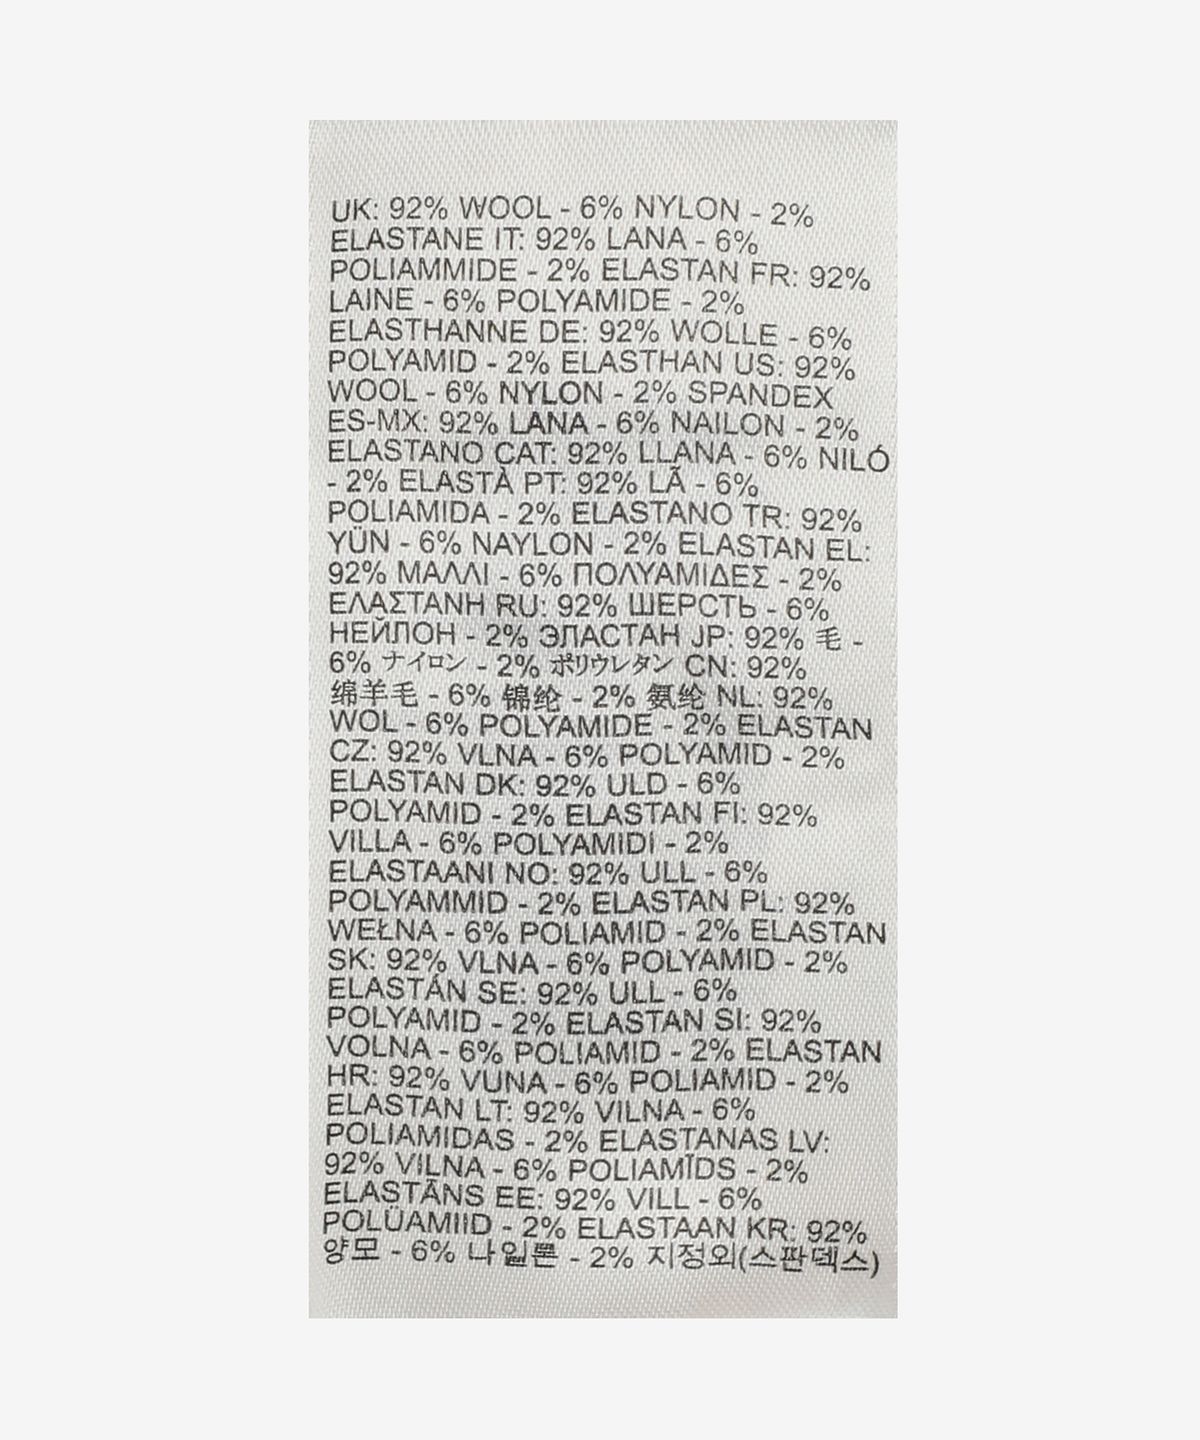 UK: 92% WOOL - 6% NYLON - 2%
ELASTANE IT: 92% LANA - 6%
POLIAMMIDE - 2% ELASTAN FR: 92%
LAINE - 6% POLYAMIDE - 2%
ELASTHANNE DE: 92% WOLLE - 6%
POLYAMID - 2% ELASTHAN US: 92%
WOOL - 6% NYLON - 2% SPANDEX
ES-MX: 92% LANA - 6% NAILON - 2%
ELASTANO CAT: 92% LLANA - 6% NILÓ
- 2% ELASTÀ PT: 92% LÃ - 6%
POLIAMIDA - 2% ELASTANO TR: 92%
YÜN - 6% NAYLON - 2% ELASTAN EL:
92% ΜΑΛΛΙ - 6% ΠΟΛΥΑΜΙΔΕΣ - 2%
ΕΛΑΣΤΑΝΗ RU: 92% ШЕРСТЬ - 6%
НЕЙЛОН - 2% ЭЛАСТАН JP: 92% 毛 -
6% ナイロン - 2% ポリウレタン CN: 92%
绵羊毛 - 6% 锦纶 - 2% 氨纶 NL: 92%
WOL - 6% POLYAMIDE - 2% ELASTAN
CZ: 92% VLNA - 6% POLYAMID - 2%
ELASTAN DK: 92% ULD - 6%
POLYAMID - 2% ELASTAN FI: 92%
VILLA - 6% POLYAMIDI - 2%
ELASTAANI NO: 92% ULL - 6%
POLYAMMID - 2% ELASTAN PL: 92%
WEŁNA - 6% POLIAMID - 2% ELASTAN
SK: 92% VLNA - 6% POLYAMID - 2%
ELASTÁN SE: 92% ULL - 6%
POLYAMID - 2% ELASTAN SI: 92%
VOLNA - 6% POLIAMID - 2% ELASTAN
HR: 92% VUNA - 6% POLIAMID - 2%
ELASTAN LT: 92% VILNA - 6%
POLIAMIDAS - 2% ELASTANAS LV:
92% VILNA - 6% POLIAMĪDS - 2%
ELASTĀNS EE: 92% VILL - 6%
POLÜAMIID - 2% ELASTAAN KR: 92%
양모 - 6% 나일론 - 2% 지정외(스판덱스)